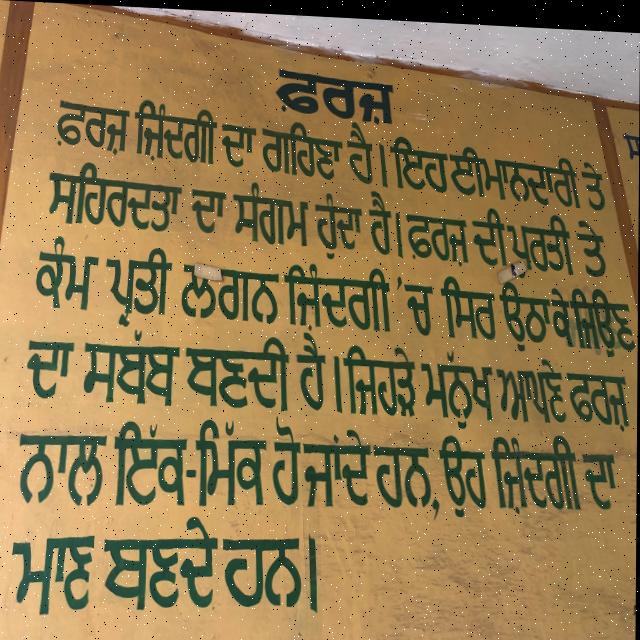 ਫ਼ਰਜ਼
ਫ਼ਰਜ਼ ਜ਼ਿੰਦਗੀ ਦਾ ਗਹਿਣਾ ਹੈ। ਇਹ ਈਮਾਨਦਾਰੀ ਤੇ
ਸਹਿਰਦਤਾ ਦਾ ਸੰਗਮ ਹੁੰਦਾ ਹੈ। ਫ਼ਰਜ਼ ਦੀ ਪੂਰਤੀ ਤੇ
ਕੰਮ ਪ੍ਰਤੀ ਲਗਨ ਜ਼ਿੰਦਗੀ 'ਚ ਸਿਰ ਉਠਾ ਕੇ ਜਿਓਣ
ਦਾ ਸਬੱਬ ਬਣਦੀ ਹੈ। ਜਿਹੜੇ ਮਨੁੱਖ ਆਪਣੇ ਫਰਜ਼
ਨਾਲ ਇੱਕ-ਮਿੱਕ ਹੋ ਜਾਂਦੇ ਹਨ, ਉਹ ਜ਼ਿੰਦਗੀ ਦਾ
ਮਾਣ ਬਣਦੇ ਹਨ।